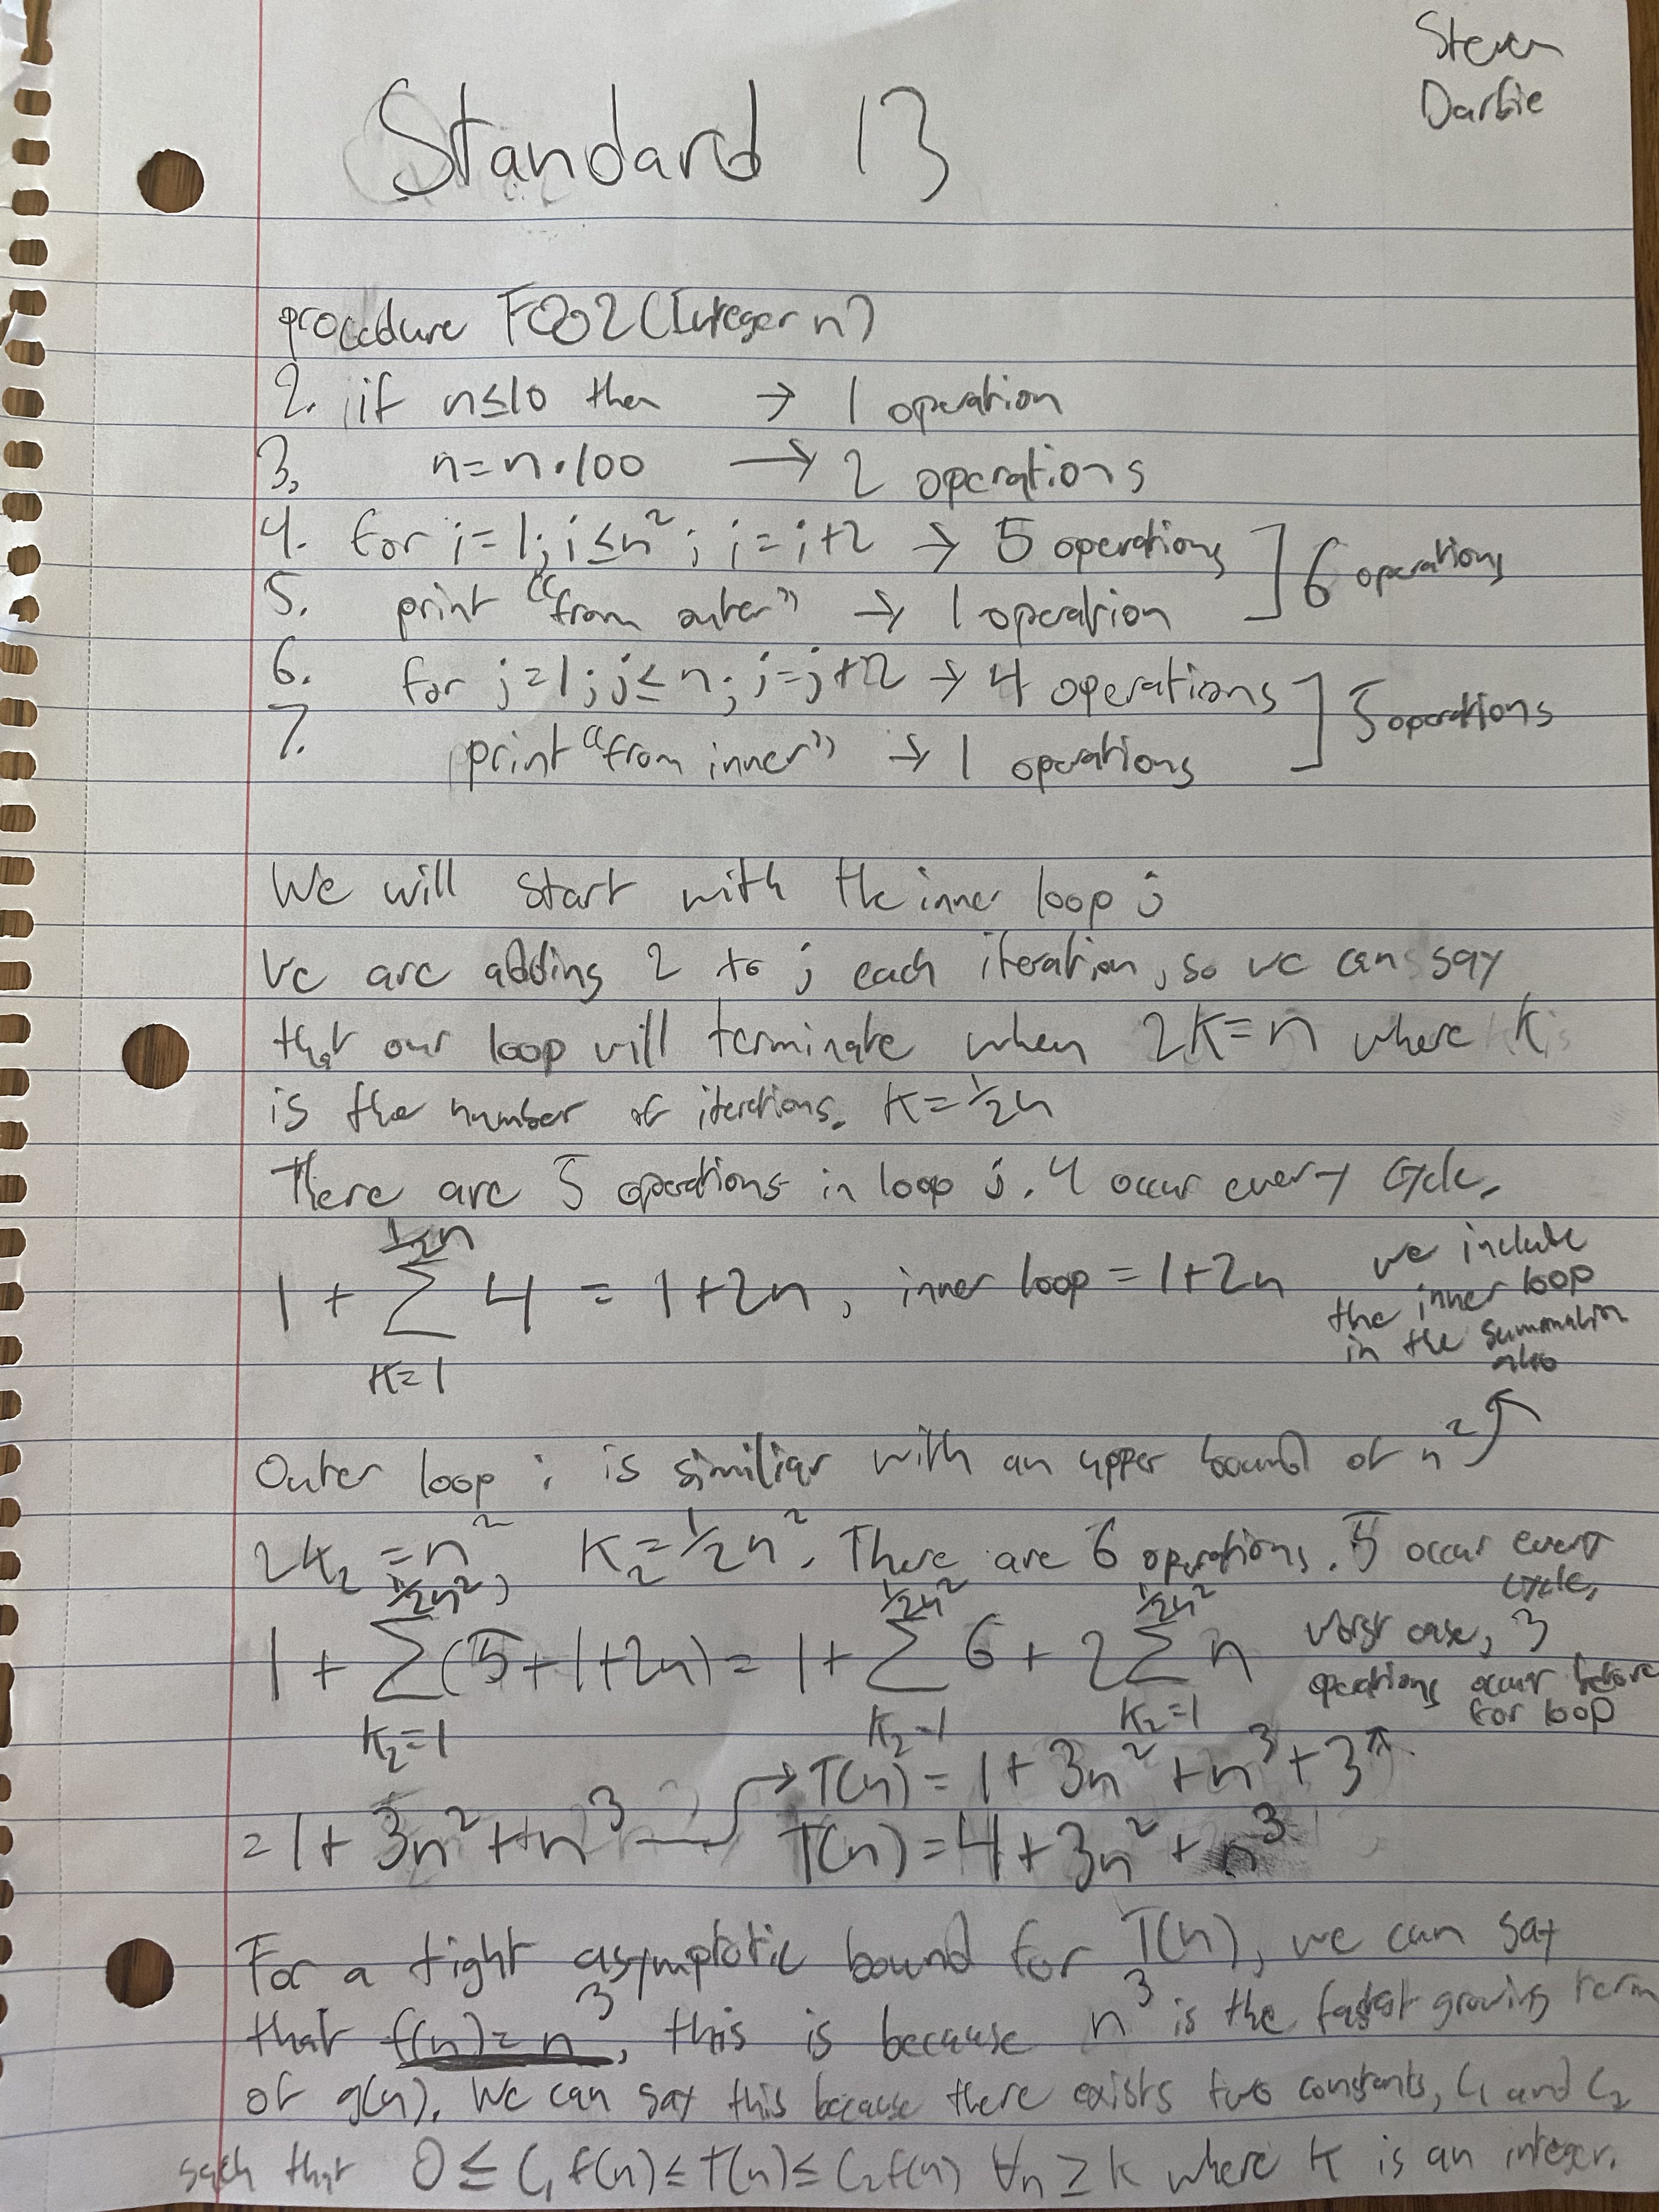 Steven
Darbie
Standard 13
procedure FOO2(Integer n)
2. if n≤10 then → 1 operation
3. n=n·100 → 2 operations
4. for i=1; i≤n²; i=i+2 → 5 operations ] 6 operations
5. print "from outer" → 1 operation
6. for j=1; j≤n; j=j+2 → 4 operations ] 5 operations
7. print "from inner" → 1 operations
We will start with the inner loop j
We are adding 2 to j each iteration, so we can say
that our loop will terminate when 2K=n where K
is the number of iterations. K=½n
There are 5 operations in loop j. 4 occur every cycle.
1 + ∑_{K=1}^{½n} 4 = 1+2n, inner loop = 1+2n
we include
the inner loop
in the summation
also
Outer loop i is similiar with an upper bound of n²
2K₂=n², K₂=½n². There are 6 operations. 5 occur every
cycle.
1 + ∑_{K₂=1}^{½n²} (5+1+2n) = 1+ ∑_{K₂=1}^{½n²} 6 + 2 ∑_{K₂=1}^{½n²} n
worst case, 3
operations occur before
for loop
→ T(n) = 1+3n²+n³+3
= 1+3n²+n³
T(n)=4+3n²+n³
For a tight asymptotic bound for T(n), we can say
that f(n)=n³, this is because n³ is the fastest growing term
of g(n). We can say this because there exists two constants, C₁ and C₂
such that 0 ≤ C₁f(n) ≤ T(n) ≤ C₂f(n) ∀n ≥ K where K is an integer.